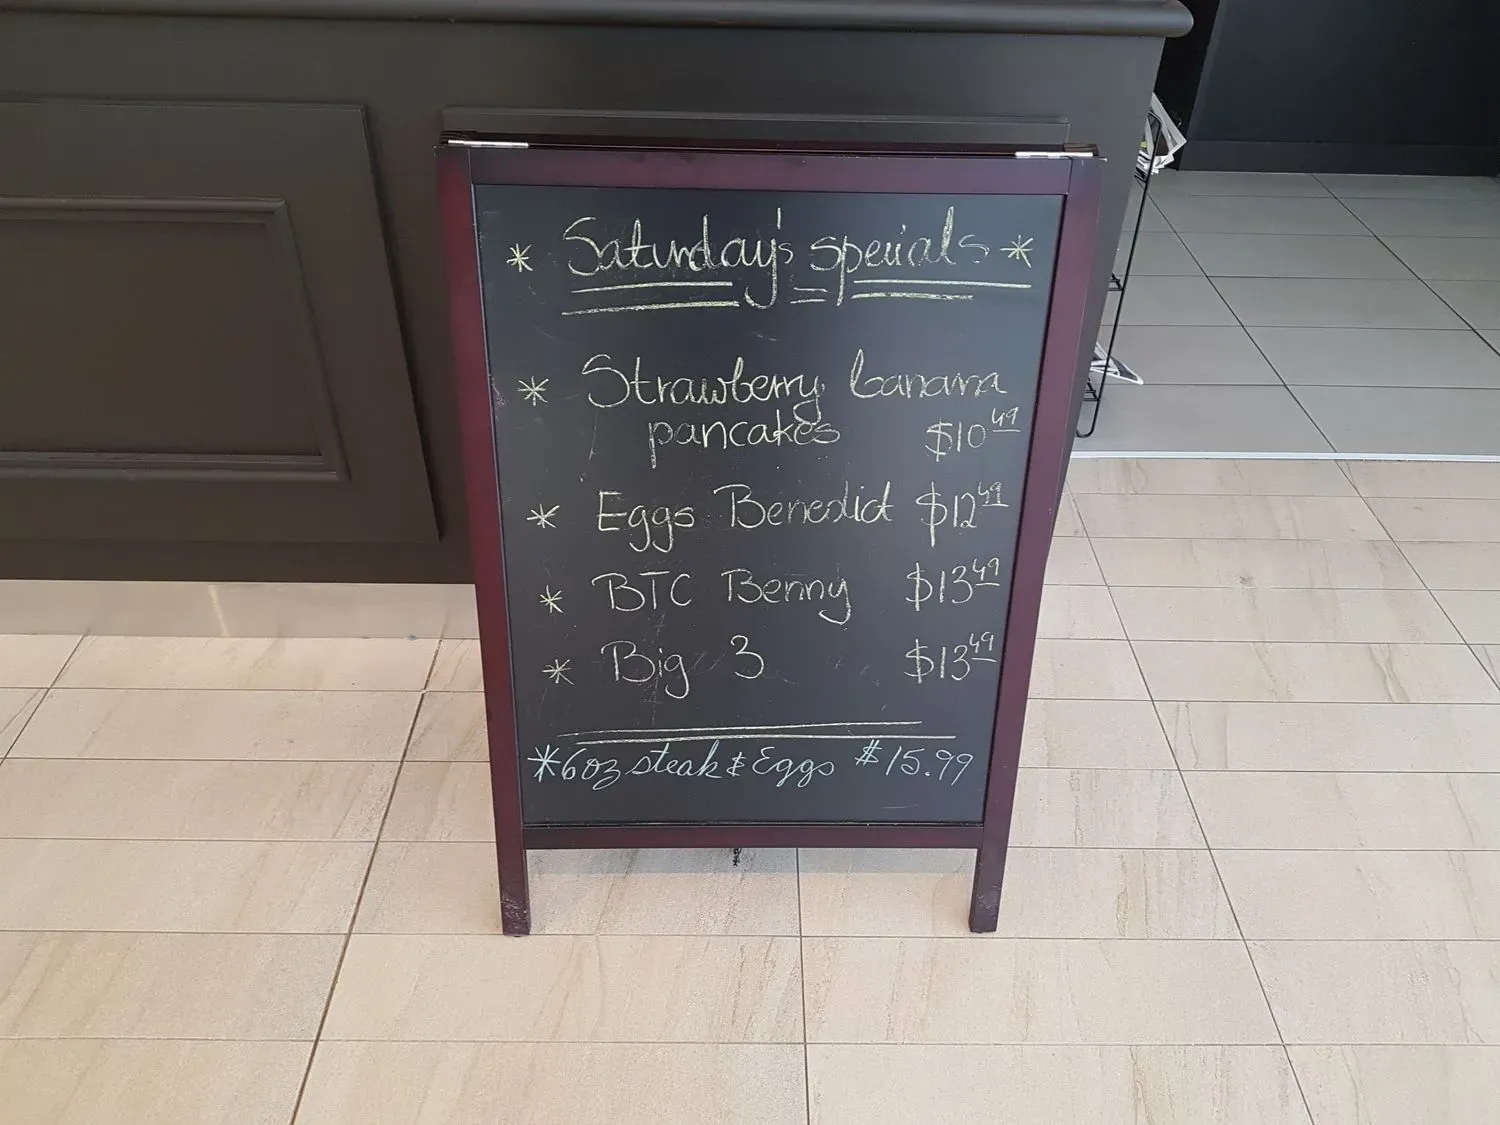 * Saturday's specials *
* Strawberry banana
pancakes $10.49
* Eggs Benedict $12.49
* BTC Benny $13.49
* Big 3 $13.49
* 6oz steak & Eggs $15.99